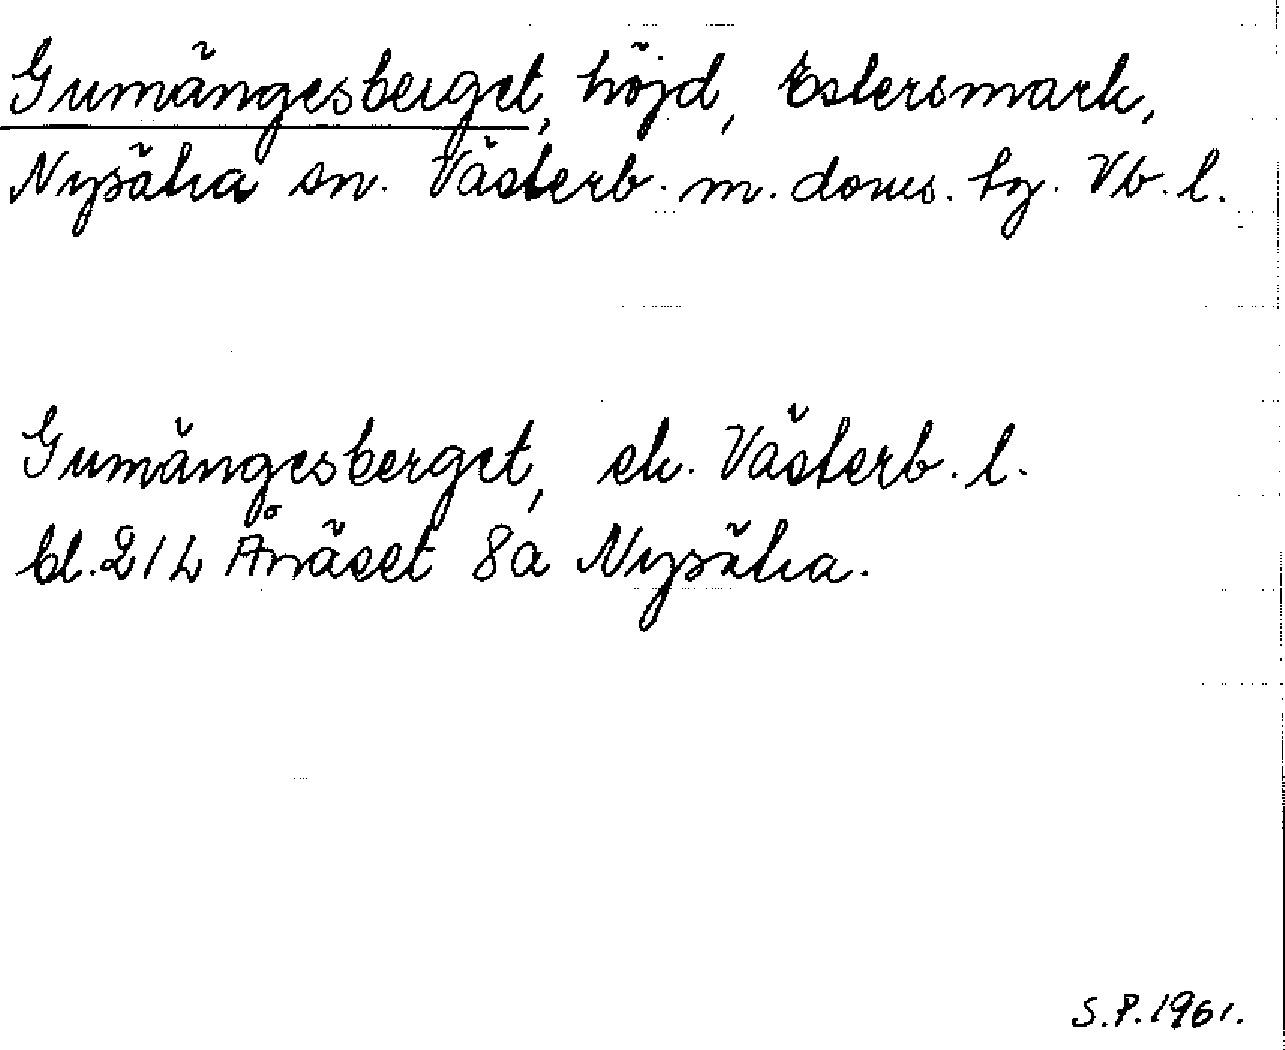 Gumängesberget, höjd, Estersmark,
Nysätra sn. Västerb. m. doms. tg. Vb. l.
Gumängesberget, ek. Västerb. l.
bl. 21L Ånäset 8a Nysätra.
S.P. 1961.